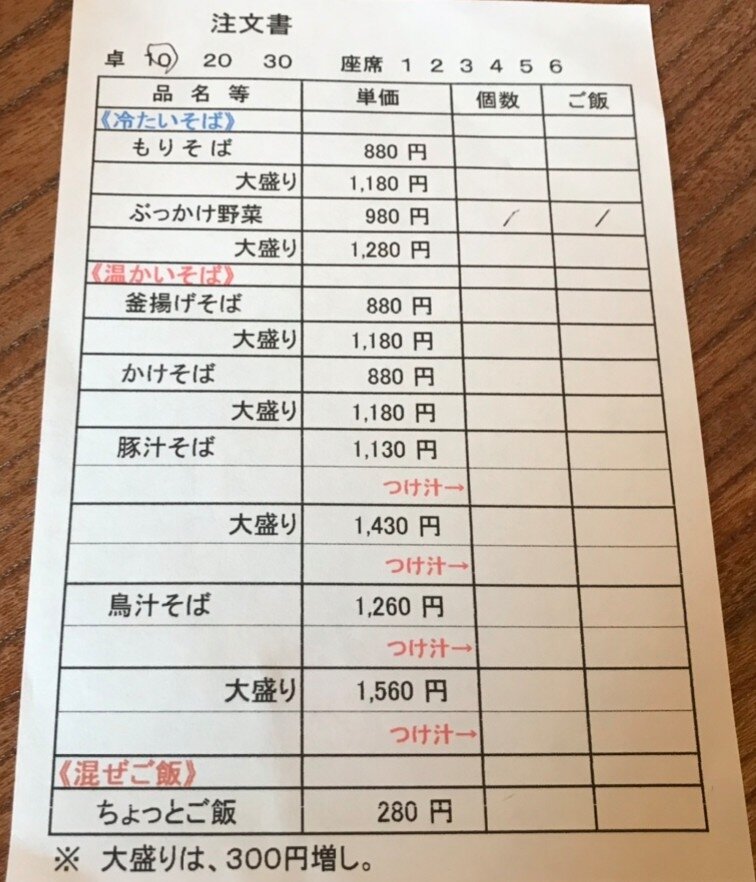 注文書
卓 10 20 30 座席 1 2 3 4 5 6
品名等 単価 個数 ご飯
《冷たいそば》
もりそば 880 円
大盛り 1,180 円
ぶっかけ野菜 980 円 / /
大盛り 1,280 円
《温かいそば》
釜揚げそば 880 円
大盛り 1,180 円
かけそば 880 円
大盛り 1,180 円
豚汁そば 1,130 円
つけ汁→
大盛り 1,430 円
つけ汁→
鳥汁そば 1,260 円
つけ汁→
大盛り 1,560 円
つけ汁→
《混ぜご飯》
ちょっとご飯 280 円
※ 大盛りは、300円増し。